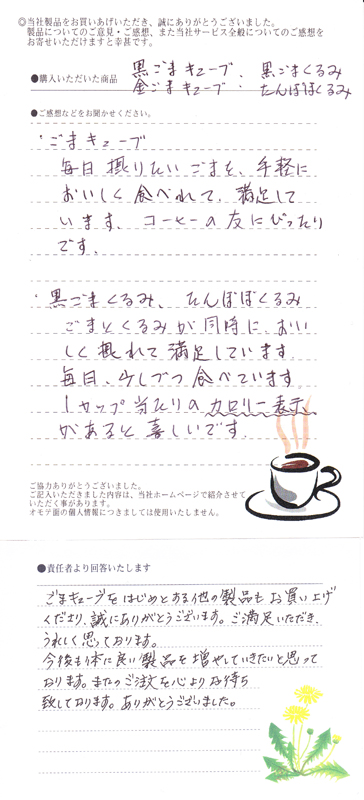 ◎当社製品をお買いあげいただき、誠にありがとうございました。
製品についてのご意見・ご感想、また当社サービス全般についてのご感想を
お寄せいただけますと幸甚です。
黒ごまキューブ、黒ごまくるみ
●購入いただいた商品 金ごまキューブ・たんぽぽくるみ
●ご感想などをお聞かせください。
・ごまキューブ
毎日摂りたいごまを、手軽に
おいしく食べれて、満足して
います。コーヒーの友にぴったり
です。
・黒ごまくるみ、たんぽぽくるみ
ごまとくるみが同時に、おい
しく摂れて満足しています。
毎日、少しづつ食べています。
1カップ当たりのカロリー表示
があると喜しいです。
ご協力ありがとうございました。
ご記入いただきました内容は、当社ホームページで紹介させて
いただく事があります。
オモテ面の個人情報につきましては使用いたしません。
●責任者より回答いたします
ごまキューブをはじめとする他の製品もお買い上げ
くだより、誠にありがとうございます。ご満足いただき、
うれしく思っております。
今後も体に良い製品を増やしていきたいと思って
おります。またのご注文を心よりお待ち
致しております。ありがとうございました。